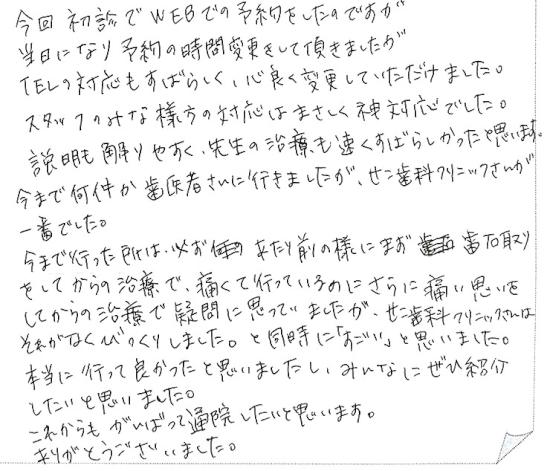 今回 初診で WEBでの予約をしたのですが
当日になり予約の時間変更をして頂きましたが
TELの対応もすばらしく、心良く変更していただけました。
スタッフのみな様方の対応はまさしく神対応でした。
説明も解りやすく、先生の治療も速くすばらしかったと思います。
今まで何件か歯医者さんに行きましたが、せこ歯科クリニックさんが
一番でした。
今まで行った所は、必ず 来たり前の様にまず 歯石取り
をしてからの治療で、痛くて行っているのにさらに痛い思いを
してからの治療で疑問に思っていましたが、せこ歯科クリニックさんは
それがなくびっくりしました。と同時に「すごい」と思いました。
本当に行って良かったと思いましたし、みんなにぜひ紹介
したいと思いました。
これからもがんばって通院したいと思います。
ありがとうございました。